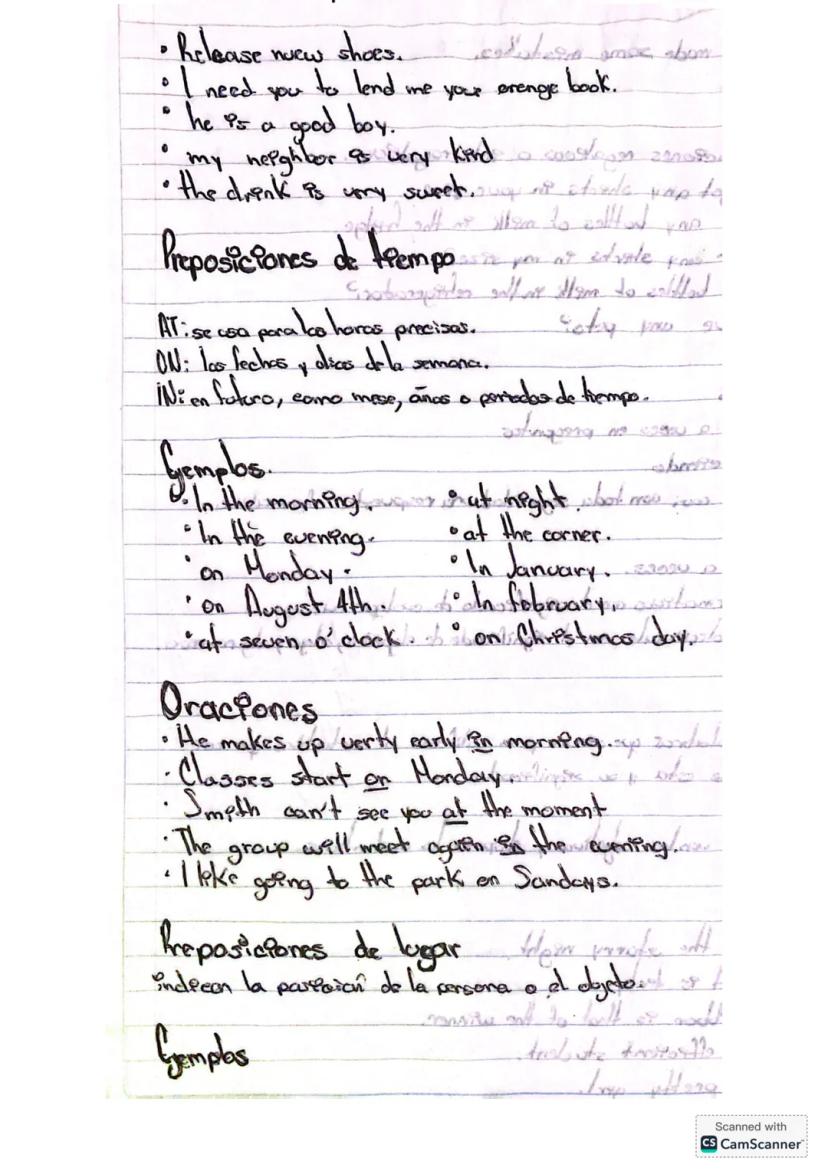 • Release nuew shoes.
• I need you to lend me your orenge book.
• he is a good boy.
• my neighbor is very kind
• the drink is very sweet.
Preposiciones de tiempo
AT: se usa para las horas precisas.
ON: las fechas y dias de la semana.
IN: en futuro, como mese, años o periodos de tiempo.
Ejemplos.
• In the morning. • at night.
• In the evening. • at the corner.
• on Monday. • In January.
• on August 4th. • In february.
• at seven o'clock. • on Christmas day.
Oraciones
• He makes up verty early in morning.
• Classes start on Monday.
• Smith can't see you at the moment
• The group will meet again in the evening.
• I like going to the park on Sandays.
Preposiciones de lugar
indican la de la persona o el objeto.
Ejemplos
Scanned with
CS CamScanner